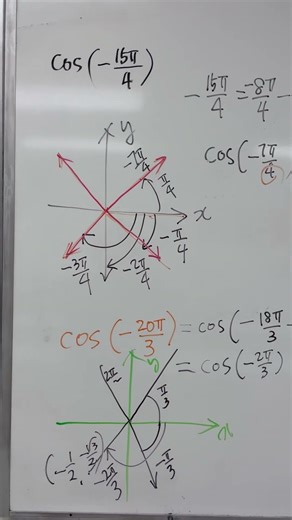 cos(-15π/4)
-15π/4 = -8π/4 -
cos(-7π/4)
y
-7π/4
π/4
x
-π/4
-3π/4
-2π/4
cos(-20π/3) = cos(-18π/3 -
= cos(-2π/3)
2π
y
π/3
x
(-1/2, -√3/2)
-2π/3
-π/3